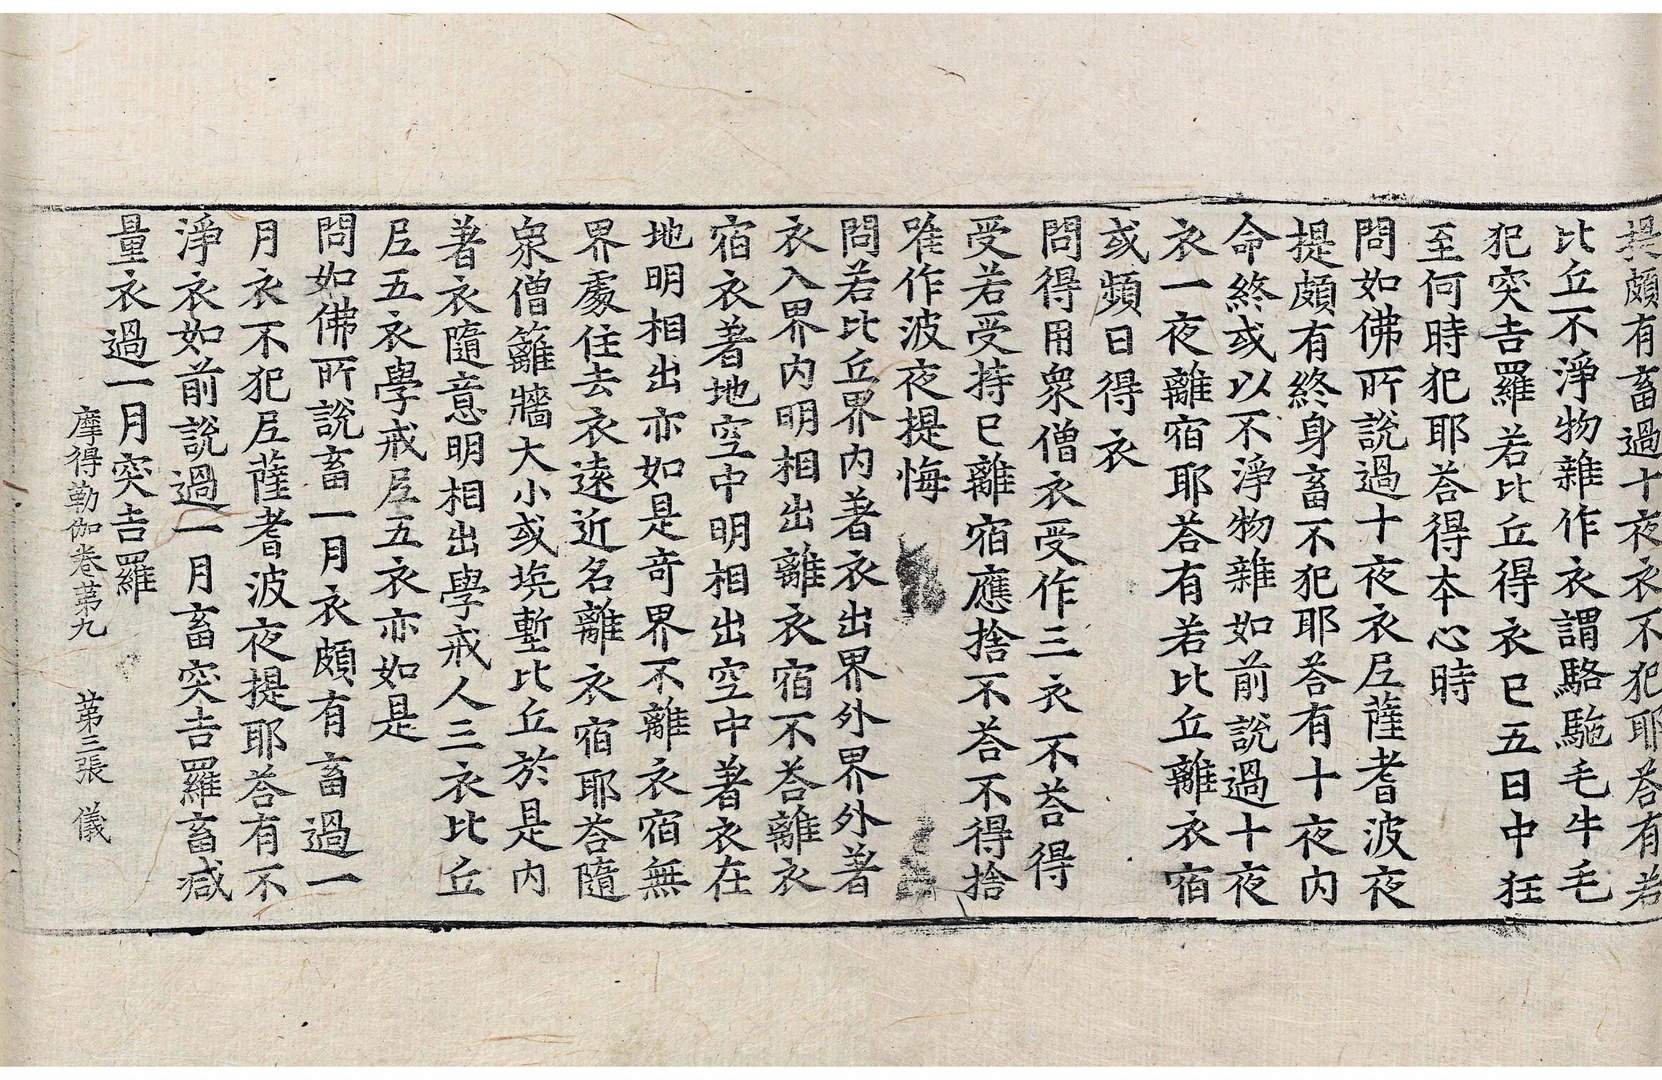 提頗有畜過十夜衣不犯耶荅有若
比丘不淨物雜作衣謂駱駞毛牛毛
犯突吉羅若比丘得衣已五日中狂
至何時犯耶荅得本心時
問如佛所說過十夜衣尼薩耆波夜
提頗有終身畜不犯耶荅有十夜内
命終或以不淨物雜如前說過十夜
衣一夜離宿耶荅有若比丘離衣宿
或頻日得衣
問得用衆僧衣受作三衣不荅得
受若受持已離宿應捨不荅不得捨
唯作波夜提悔
問若比丘界内著衣出界外界外著
衣入界内明相出離衣宿不荅離衣
宿衣著地空中明相出空中著衣在
地明相出亦如是奇界不離衣宿無
界處住去衣遠近名離衣宿耶荅隨
衆僧籬牆大小或埦塹比丘於是内
著衣隨意明相出學戒人三衣比丘
尼五衣學戒尼五衣亦如是
問如佛所說畜一月衣頗有畜過一
月衣不犯尼薩耆波夜提耶荅有不
淨衣如前說過一月畜突吉羅畜減
量衣過一月突吉羅
摩得勒伽卷苐九 苐三張 儀